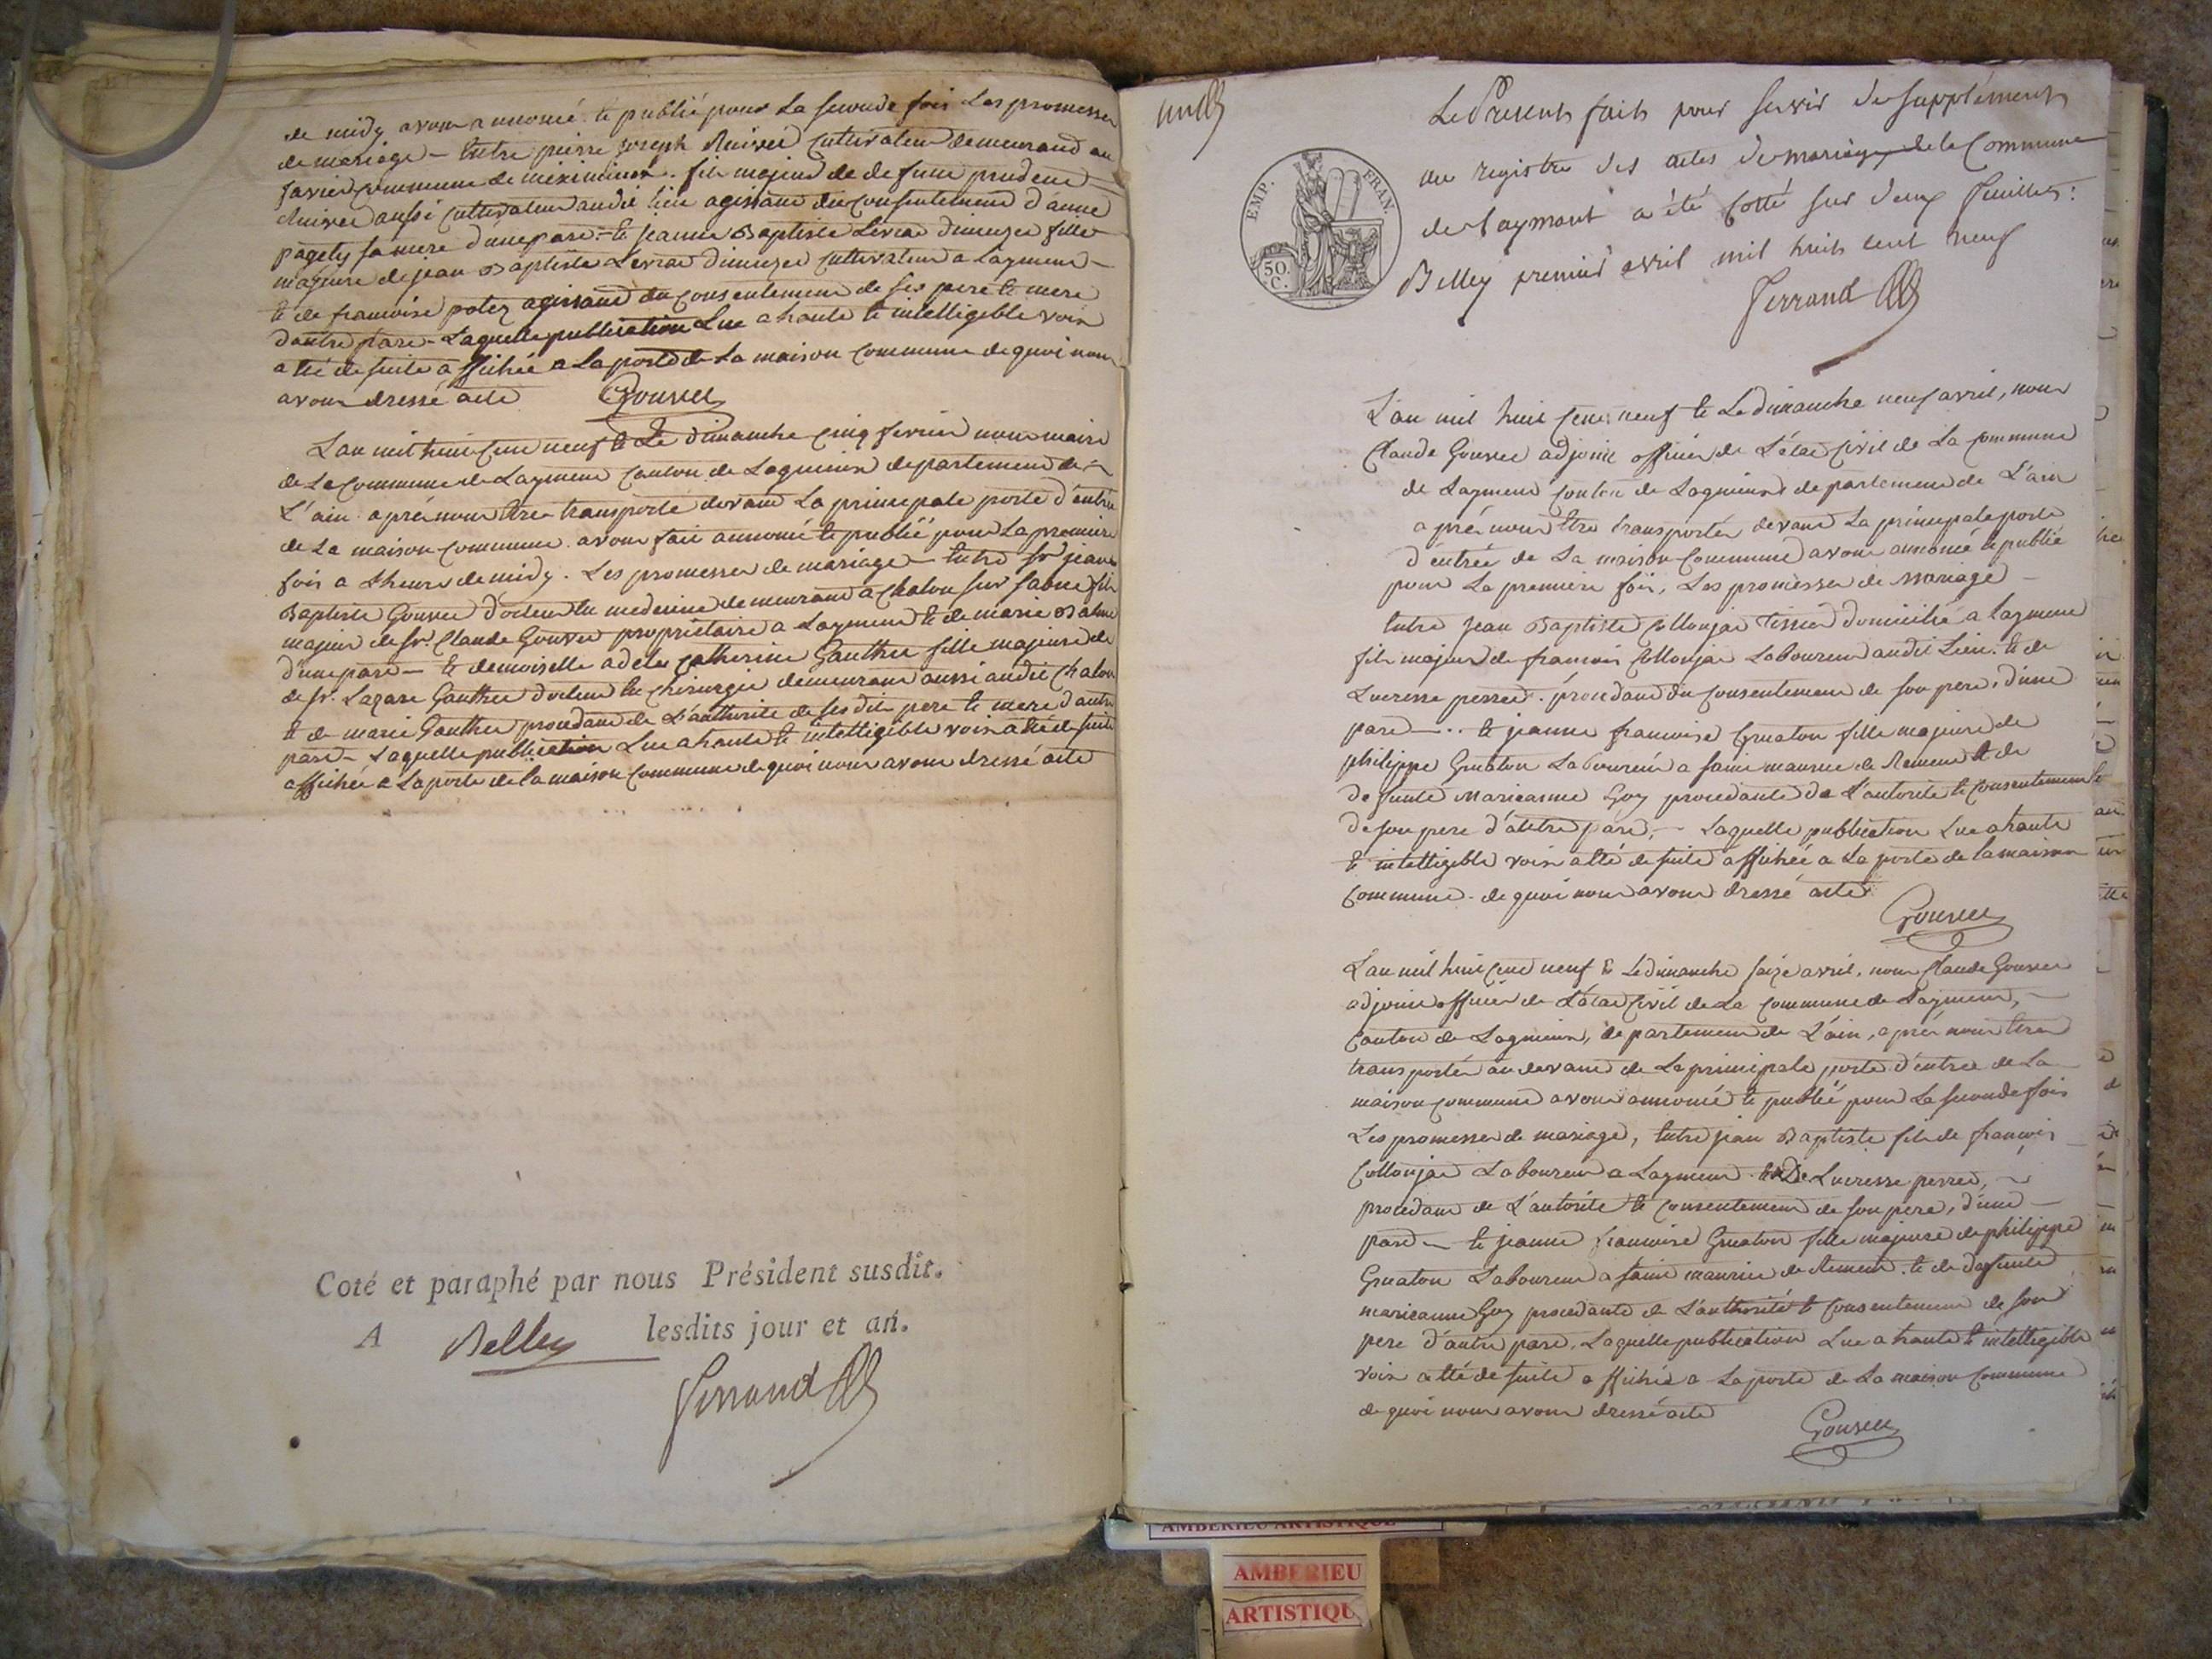 de midy avons annoncé et publié pour La seconde fois Les promesses
de mariage – Entre pierre joseph cultivateur demeurant au
commune de meximieux. fils majeur de defunt prudent
aussi cultivateur audit lieu agissant du Consentement d'anne
pagety sa mere d'une part – et jeanne Baptiste Levrat fille
majeure de jean Baptiste Levrat cultivateur a Laymene –
et de francoise potez agissant du consentement de ses pere et mere
d'autre part – Laquelle publication Lue a haute et intelligible voix
a été de suite affichée a La porte de La maison Commune de quoi nous
avons dressé acte Gouvee
L'an mil huit Cent neuf et Le dimanche Cinq fevrier nous maire
de La Commune de Laymene Canton de Lagnieux departement de
L'ain après nous être transporté devant La principale porte d'entrée
de La maison commune avons fait annoncé et publié pour La premiere
fois a L'heure de midy. Les promesses de mariage – Entre Sr jean
Baptiste Gouvee docteur En medecine demeurant a Chalon sur Saone fils
majeur de Sr. Claude Gouvee proprietaire a Laymene et de marie Balme
d'une part – et demoiselle adele Catherine Gauthee fille majeure de
de Sr. Lazare Gauthee docteur En chirurgie demeurant aussi audit Chalon
et de marie Gauthee procedant de L'authorité de sesdits pere et mere d'autre
part – Laquelle publication Lue a haute et intelligible voix a été de suite
affichée a La porte de la maison Commune de quoi nous avons dressé acte
Coté et paraphé par nous Président susdit.
A Belley lesdits jour et an.
Ferrand
Le Present fait pour servir de supplément
au registre des actes de mariage de la Commune
de Laymont a été Cotté sur deux feuillets:
Belley premier avril mil huit cent neuf
Ferrand
EMP. FRAN.
50. C.
L'an mil huit Cent neuf et Le dimanche neuf avril, nous
Claude Gouvee adjoint officier de L'état Civil de La Commune
de Laymene Canton de Lagnieux departement de L'ain
après nous être transportés devant La principale porte
d'entrée de La maison Commune avons annoncé et publié
pour La premiere fois, Les promesses de mariage –
Entre Jean Baptiste Collonjat tissier domicilié a laymene
fils majeur de francois Collonjat Laboureur audit Lieu. et de
Lucresse perret. procedant du Consentement de son pere, d'une
part – .. et jeanne francoise Gruaton fille majeure de
philippe Gruaton Laboureur a saint maurice de Remens et de
defunte Marieanne Goy procedante de L'autorité et Consentement
de son pere d'autre part, – Laquelle publication Lue a haute
et intelligible voix a été de suite affichée a La porte de la maison
Commune. de quoi nous avons dressé acte
Gouvee
L'an mil huit Cent neuf et Le dimanche saize avril, nous Claude Gouvee
adjoint officier de L'état Civil de La Commune de Laymene, –
Canton de Lagnieux, departement de L'ain, après nous être
transportés au devant de La principale porte d'entrée de La
maison Commune avons annoncé et publié pour La seconde fois
Les promesses de mariage, Entre jean Baptiste fils de francois
Collonjat Laboureur a Laymene. et De Lucresse perret,
procedant de L'autorité et Consentement de son pere, d'une –
part – et jeanne francoise Gruaton fille majeure de philippe
Gruaton Laboureur a saint maurice de Remens. et de defunte
marieanne Goy procedante de L'authorité et Consentement de son
pere d'autre part, Laquelle publication Lue a haute et intelligible
voix a été de suite affichée a La porte de La maison Commune
de quoi nous avons dressé acte Gouvee
AMBERIEU ARTISTIQUE
AMBERIEU
ARTISTIQU